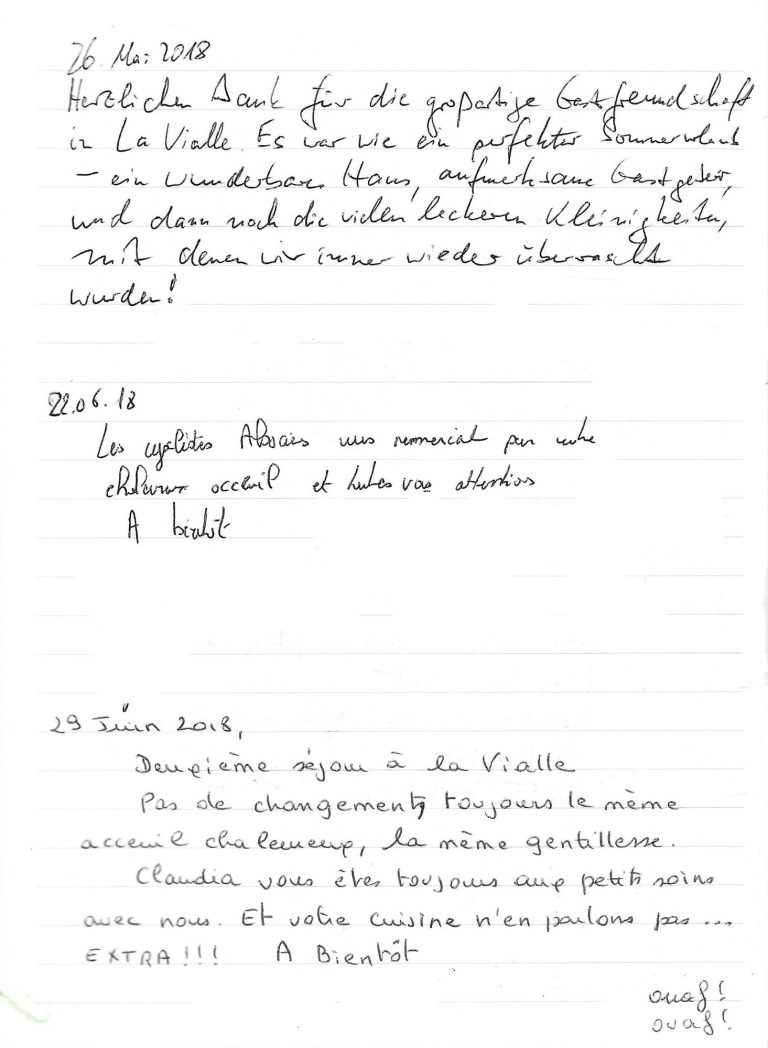 26. Mai 2018
Herzlichen Dank für die großartige Gastfreundschaft
in La Vialle. Es war wie ein perfekter Sommerurlaub
- ein wunderbares Haus, aufmerksame Gastgeber,
und dann noch die vielen leckeren Kleinigkeiten,
mit denen wir immer wieder überrascht
wurden!
22.06.18
Les cyclistes vous remercient pour votre
chaleureux acceuil et toutes vos attentions
A bientôt
29 Juin 2018,
Deuxième séjour à la Vialle
Pas de changement, toujours le même
acceuil chaleureux, la même gentillesse.
Claudia vous êtes toujours aux petits soins
avec nous. Et votre cuisine n'en parlons pas ...
EXTRA!!! A Bientôt
ouaf!
ouaf!